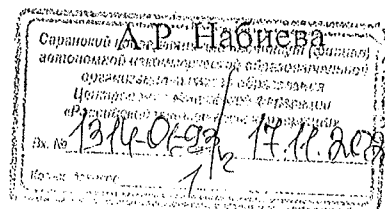 А.Р. Набиева
Саранский кооперативный институт (филиал)
автономной некоммерческой образовательной
организации высшего образования
Центросоюза Российской Федерации
«Российский университет кооперации»
Вх. № 1314-01-93/2 17.11.202